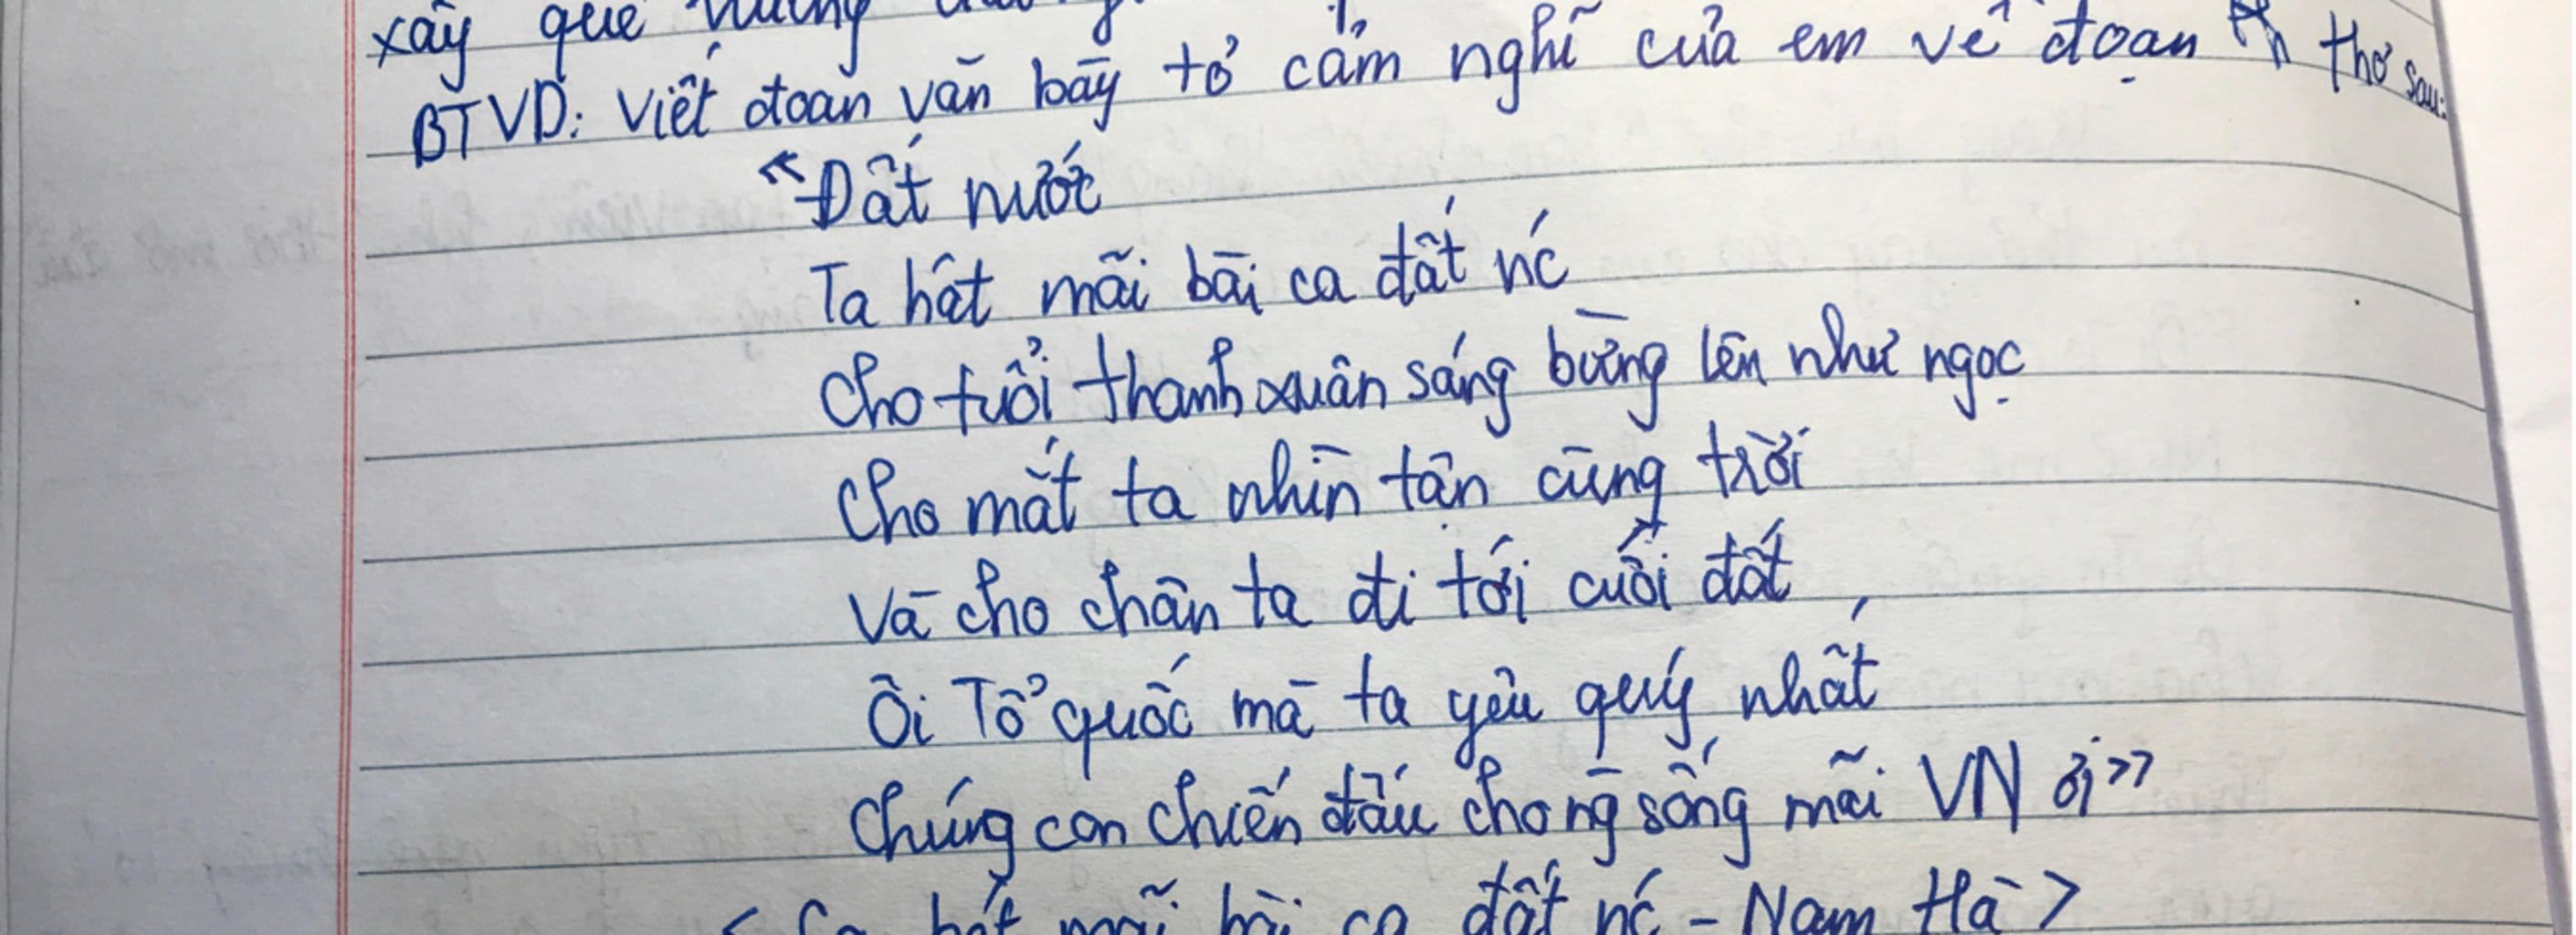 xây quê hương
BTVD: Viết đoạn văn bày tỏ cảm nghĩ của em về đoạn thơ sau:
"Đất nước
Ta hát mãi bài ca đất nc
Cho tuổi thanh xuân sáng bừng lên như ngọc
Cho mắt ta nhìn tận cùng trời
Và cho chân ta đi tới cuối đất
Ôi Tổ quốc mà ta yêu quý nhất
Chúng con chiến đấu cho ng sống mãi VN ơi"
hát mãi bài ca đất nc - Nam Hà >